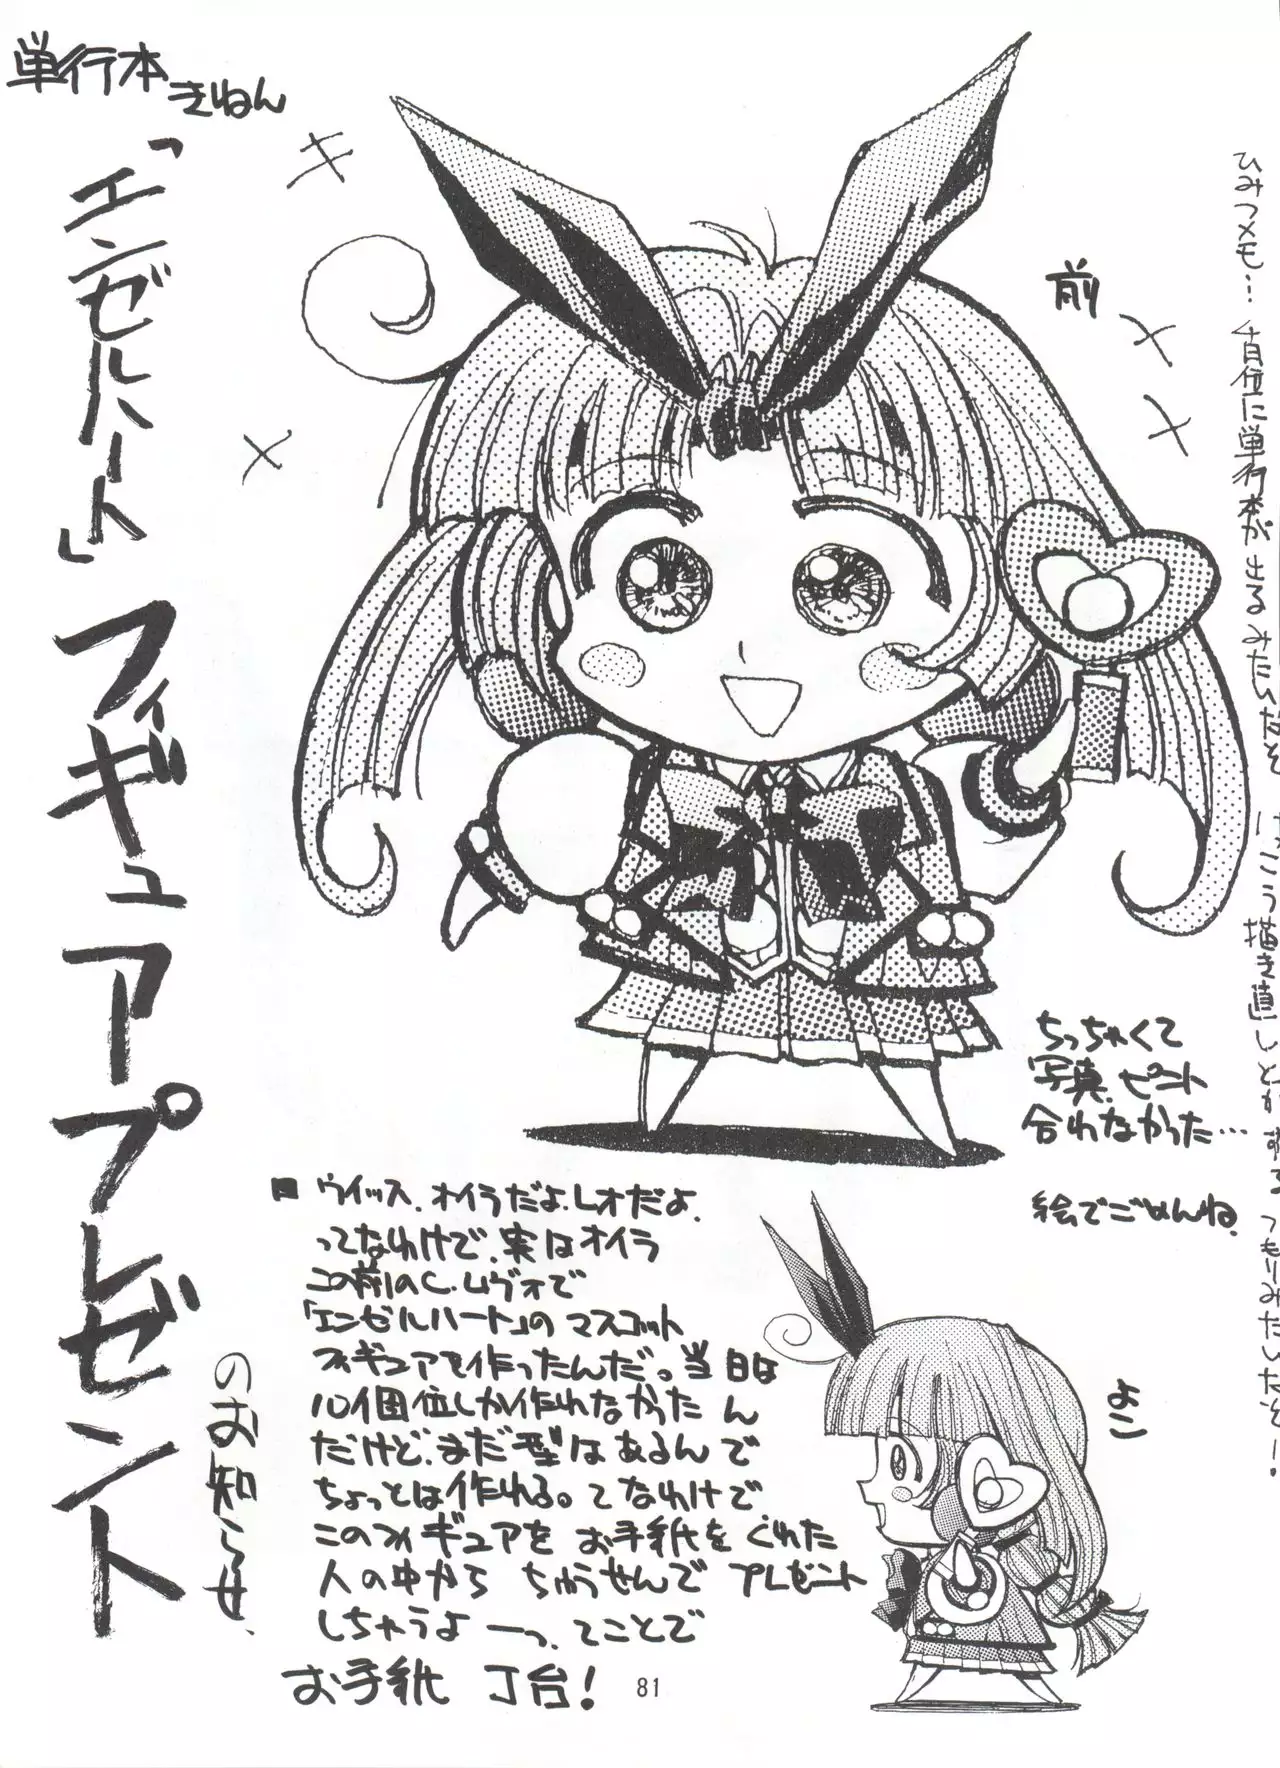 単行本
きねん
「エンゼルハート」フィギュアプレゼント
のお知らせ、
前
ひみつメモ… 1百位に単行本が出るみたいだぞ けっこう描き直しとかするつもりみたいだぞー!
ちっちゃくて
写真、ピント
合わなかった…
絵でごめんね。
■ ウイッス、オイラだよ、レオだよ、
ってなわけで、実はオイラ
この前のC・レヴォで
「エンゼルハート」のマスコット
フィギュアを作ったんだ。当日は
10個位しか作れなかったん
だけど、まだ型はあるんで
ちょっとは作れる。てなわけで
このフィギュアをお手紙をくれた
人の中から ちゅうせんで プレゼント
しちゃうよーっ、てことで
お手紙 丁台!
よこ
81